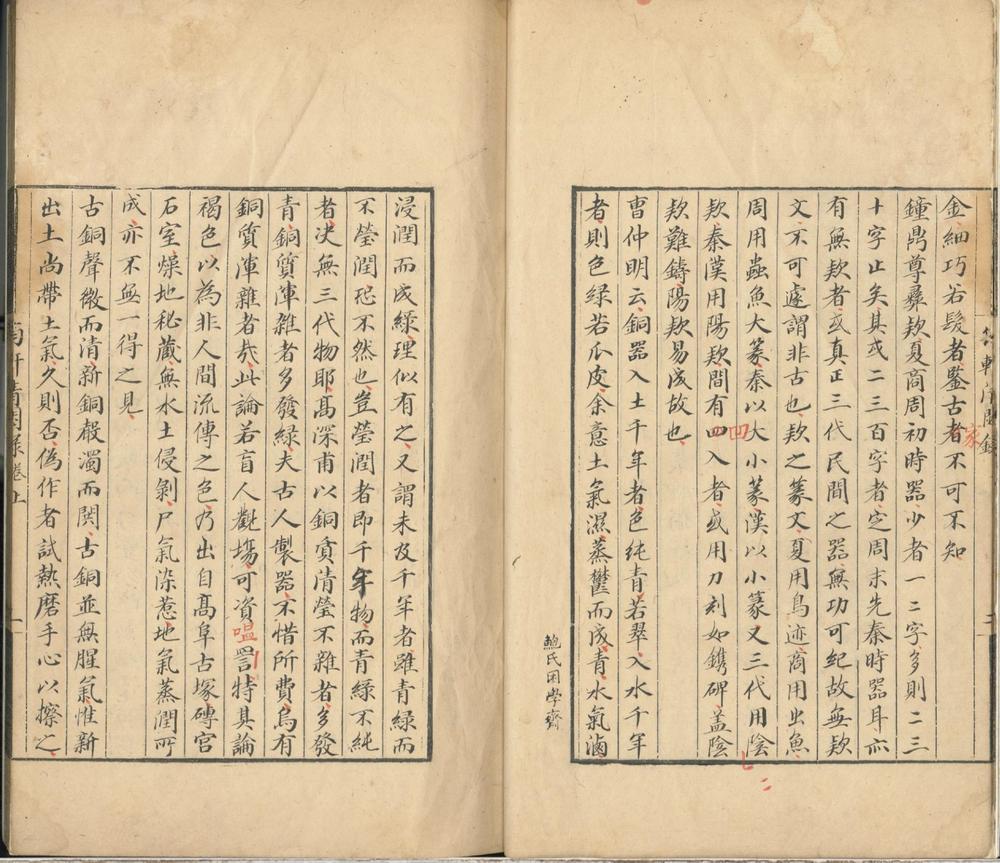 金細巧若髮者鑒古者不可不知
家
鐘鼎尊彝欵夏商周初時器少者一二字多則二三
十字止矣其或二三百字者定周末先秦時器耳亦
有無欵者或真正三代民間之器無功可紀故無欵
文不可遽謂非古也欵之篆文夏用鳥迹商用虫魚
周用蟲魚大篆秦以大小篆漢以小篆又三代用陰
欵秦漢用陽欵間有凹入者或用刀刻如鐫碑盖陰
凹
欵難鑄陽欵易成故也
曺仲明云銅器入土千年者色純青若翠入水千年
者則色绿若瓜皮余意土氣濕蒸鬱而成青水氣滷
鮑氏困學齋
浸潤而成綠理似有之又謂未及千年者雖青綠而
不瑩潤恐不然也豈瑩潤者即千年物而青綠不純
者决無三代物耶髙深甫以銅質清瑩不雜者多發
青銅質渾雜者多發绿夫古人製器不惜所費烏有
銅質渾雜者㢤此論若盲人觀塲可資嗢噱特其論
褐色以為非人間流傳之色乃出自髙阜古塚磚宫
石室燥地秘藏無水土侵剝尸氣染惹地氣蒸潤所
成亦不無一得之見
古銅聲微而清新銅聲濁而鬨古銅並無腥氣惟新
出土尚帶土氣久則否偽作者試熱磨手心以擦之
清閟錄卷上
一